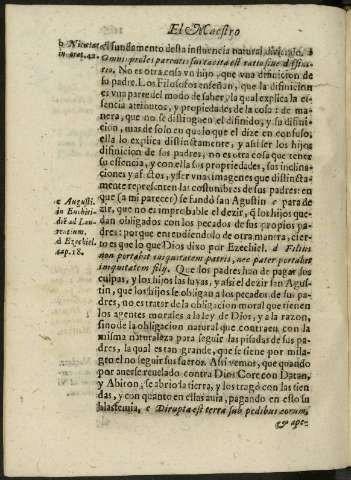 El Maestro
b Nicetas
in orat. 42.
el fundamento desta influencia natural, diziendo. b
Omnis proles parentis sui tacita est ratio siue difini-
tio, No es otra cosa vn hijo, que vna difinicion de
su padre. Los Filosofos enseñan, que la difinicion
es vna parte del modo de saber, la qual explica la es-
sencia atributos, y propiedades de la cosa: de ma-
nera, que no se distinguen el difinido, y su difini-
cion, mas de solo en que lo que el dize en confuso,
ella lo explica distinctamente, y assi ser los hijos
difinicion de sus padres, no es otra cosa que tener
su essencia, y con ella sus propiedades, sus inclina-
ciones y afectos, y ser vnas imagenes que distincta-
mente representen las costumbres de sus padres: en
que (a mi parecer) se fundó san Agustin c para de
zir, que no es improbable el dezir, q̃ los hijos que-
dan obligados con los pecados de sus propios pa-
dres: porque entendiendolo de otra manera, cier-
to es que lo que Dios dixo por Ezechiel. d Filius
non portabit iniquitatem patris, nec pater portabit
iniquitatem filij. Que los padres han de pagar sus
culpas, y los hijos las suyas, y assi el dezir san Agus-
tin, que los hijos se obligan a los pecados de sus pa-
dres, no es tratar de la obligacion moral que tienen
los agentes morales a la ley de Dios, y a la razon,
sino de la obligacion natural que contraen con la
misma naturaleza para seguir las pisadas de sus pa-
dres, la qual es tan grande, que se tiene por mila-
gro el no seguir sus fueros. Assi vemos, que quando
por auerse reuelado contra Dios Core con Datan,
y Abiron, se abrio la tierra, y los tragó con las tien
das, y con quanto en ellas auia, pagando en esto su
blasfemia, e Dirupta est terra sub pedibus eorum,
& ape-
c Augusti.
in Enchiri-
diō ad Lau-
rentium.
d Ezechiel.
cap. 18.